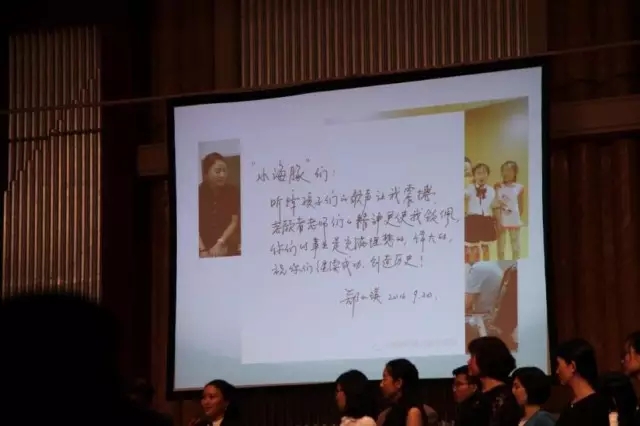 “小海豚”们：
听障孩子们的歌声让我震撼，
志愿者老师们的精神更使我钦佩，
你们的事业是充满理想的、伟大的，
祝你们继续成功、创造历史！
郑小瑛 2016.9.20.